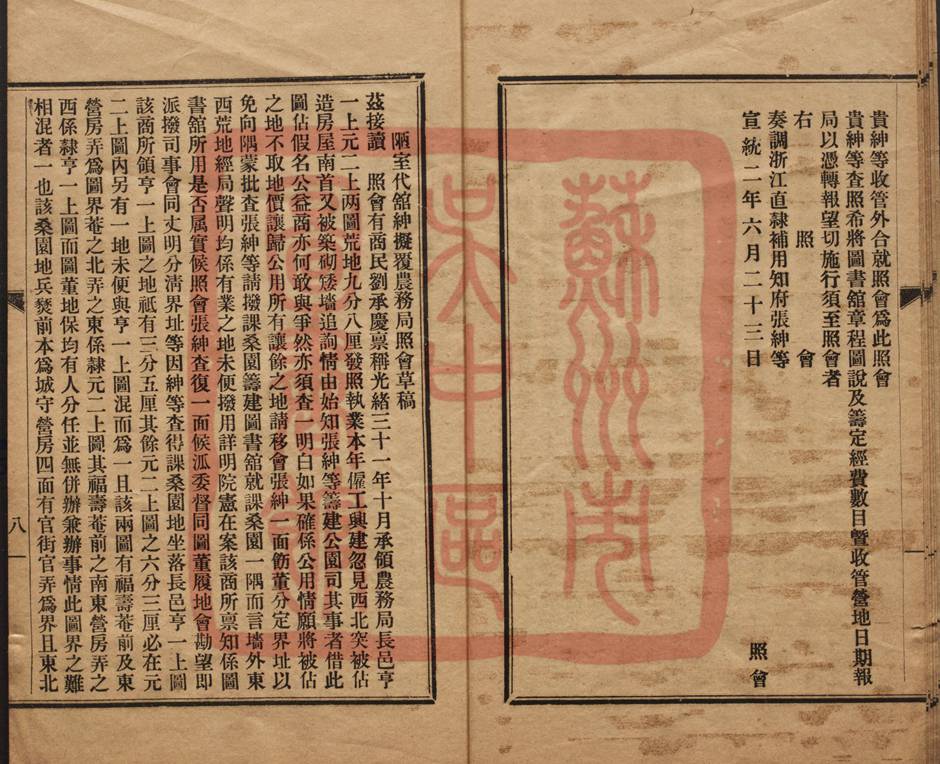 貴紳等收管外合就照會爲此照會
貴紳等查照希將圖書舘章程圖說及籌定經費數目暨收管營地日期報
局以憑轉報望切施行須至照會者
右　照　會
奏調浙江直隸補用知府張紳等
宣統二年六月二十三日
照會
陋室代舘紳擬覆農務局照會草稿
茲接讀　照會有商民劉承慶禀稱光緒三十一年十月承領農務局長邑亨
一上元二上兩圖荒地九分八厘發照執業本年僱工興建忽見西北突被佔
造房屋南首又被築砌矮墻追詢情由始知張紳等籌建公園司其事者借此
圖佔假名公益商亦何敢與爭然亦須查一明白如果確係公用情願將被佔
之地不取地價讓歸公用所有讓餘之地請移會張紳一面飭董分定界址以
免向隅蒙批查張紳等請撥課桑園籌建圖書舘就課桑園一隅而言墻外東
西荒地經局聲明均係有業之地未便撥用詳明院憲在案該商所禀知係圖
書舘所用是否属實候照會張紳查復一面候派委督同圖董履地會勘望即
派撥司事會同丈明分淸界址等因紳等查得課桑園地坐落長邑亨一上圖
該商所領亨一上圖之地祇有三分五厘其餘元二上圖之六分三厘必在元
二上圖內另有一地未便與亨一上圖混而爲一且該兩圖有福壽菴前及東
營房弄爲圖界菴之北弄之東係隸元二上圖其福壽菴前之南東營房弄之
西係隸亨一上圖而圖董地保均有人分任並無併辦兼辦事情此圖界之難
相混者一也該桑園地兵燹前本爲城守營房四面有官街官弄爲界且東北
八
蘇州市
吳中區